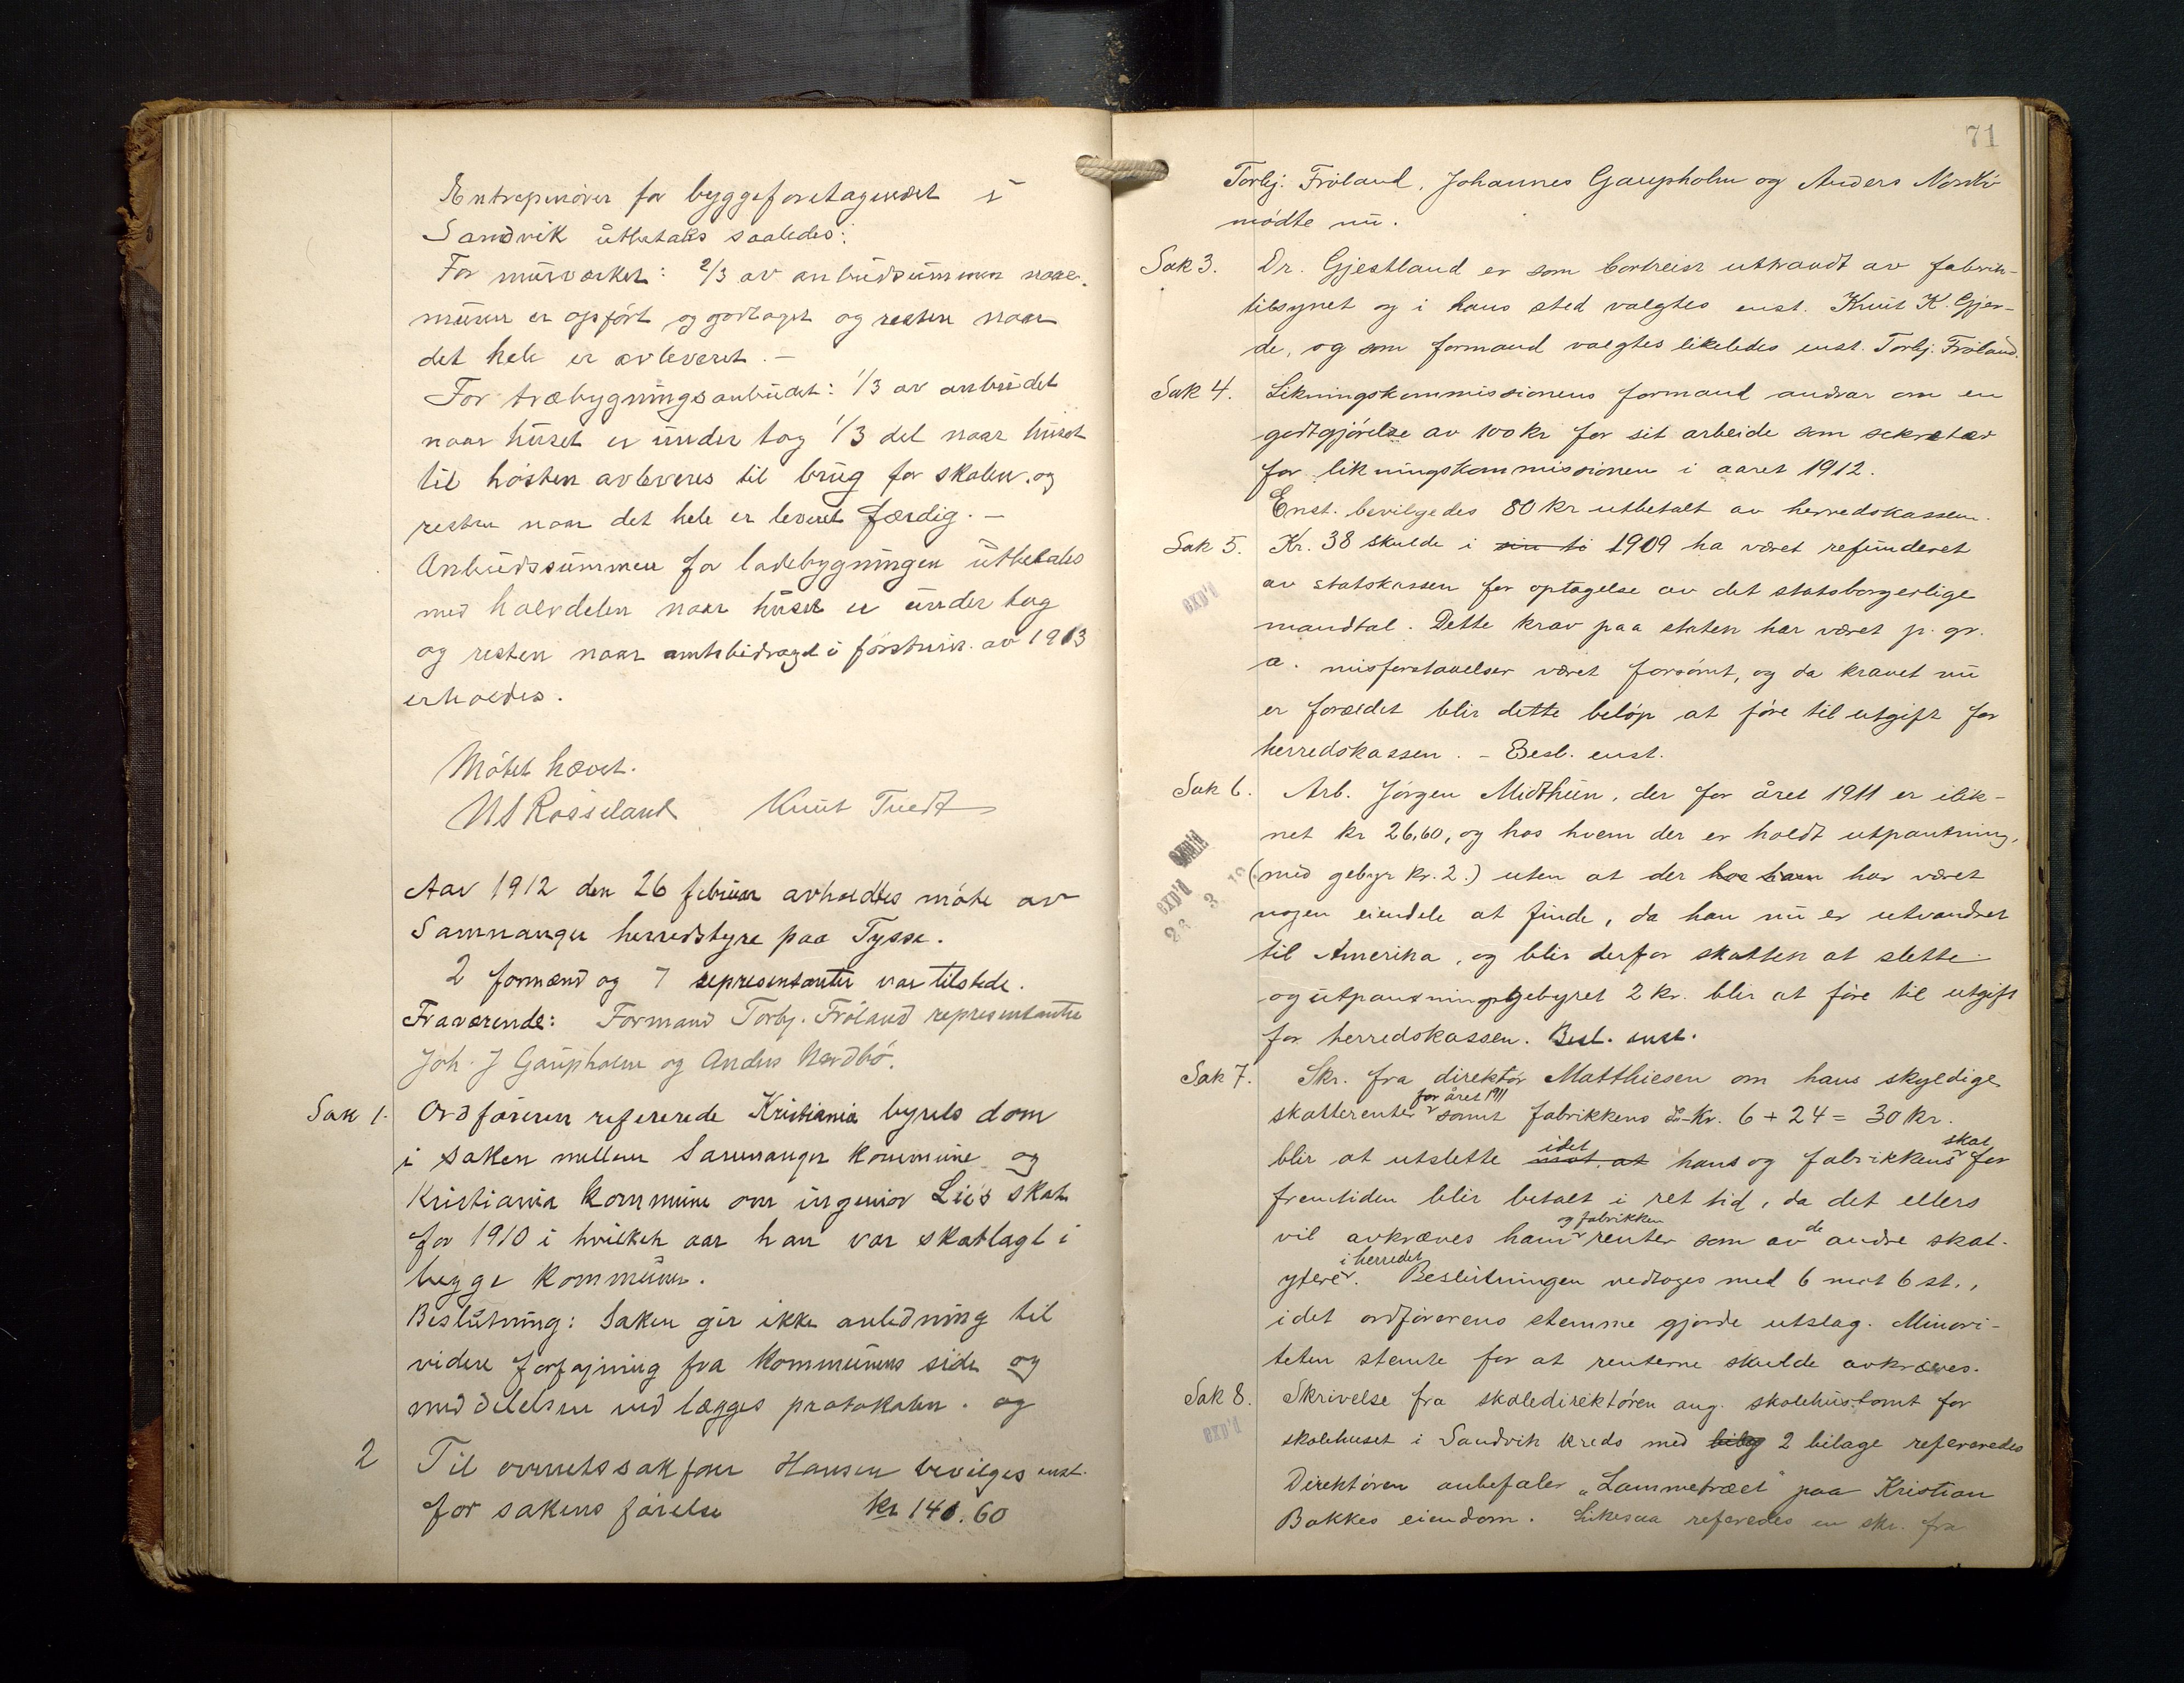 Entreprenören for byggeforetagendet i
Sandvik utbetales saaledes:
For murverket: 2/3 av anbudsummen naar
muren er opfört og godtaget og resten naar
det hele er avleveret. —
For træbygningsanbudet: 1/3 av anbudet
naar huset er under tag 1/3 del naar huset
til hösten avleveres til brug for skolen. og
resten naar det hele er leveret færdig. —
Anbudssummen for ladebygningen utbetales
med halvdelen naar huset er under tag
og resten naar amtsbidraget i av 1913
erholdes.
Mötet hævet.
NS Rösseland Knut Tvedt
Aar 1912 den 26 februar avholdtes möte av
Samnanger herredstyre paa Tysse.
2 formænd og 7 representanter var tilstede.
Fraværende: Formand Torbj. Fröland representantene
Joh. J Gaupholm og Anders Nordbö.
Sak 1. Ordföreren refererede Kristiania byrets dom
i saken mellem Samnanger kommune og
Kristiania kommune om ingeniör Lie's skat
for 1910 i hvilket aar han var skatlagt i
begge kommuner.
Beslutning: Saken gir ikke anledning til
videre forföining fra kommunens side og
meddelelsen vedlægges protokolen. og
2 Til overretssakförer Hansen bevilges enst.
for sakens förelse kr 140.60
71
Torbj. Fröland, Johannes Gaupholm og Anders Nordbö
mödte nu.
Sak 3. Dr. Gjestland er som bortreist uttraadt av fabrik-
tilsynet og i hans sted valgtes enst. Knut K. Gjer-
de, og som formand valgtes likeledes enst. Torbj. Fröland.
Sak 4. Likningskommissionens formand andrar om en
godtgjörelse av 100 kr for sit arbeide som sekretær
for likningskommissionen i aaret 1912.
Enst. bevilgedes 80 kr utbetalt av herredskassen.
Sak 5. Kr. 38 skulde i sin ti 1909 ha været refunderet
exp'd av statskassen for optagelse av det statsborgerlige
mandtal. Dette krav paa staten har været p. gr.
a. misforstaaelser været forsömt, og da kravet nu
er forældet blir dette belöp at före til utgift for
herredskassen. - Besl. enst.
Sak 6. Arb. Jörgen Midthun, der for året 1911 er ilik-
net kr 26,60, og hos hvem der er holdt utpantning,
exp'd (med gebyr kr. 2.) uten at der hos ham har været
nogen eiendele at finde, da han nu er utvandret
til Amerika, og blir derfor skatten at slette
og utpantningsgebyret 2 kr. blir at före til utgift
for herredskassen. Besl. enst.
Sak 7. Skr. fra direktör Matthiesen om hans skyldige
skatterenter for året 1911 samt fabrikkens Kr. 6 + 24 = 30 kr.
blir at utslette mot at idet hans og fabrikkens skat for
fremtiden blir betalt i ret tid, da det ellers
vil avkræves ham og fabrikken renter som av de andre skat-
ytere i herredet. Beslutningen vedtoges med 6 mot 6 st.,
idet ordförerens stemme gjorde utslag. Minori-
teten stemte for at renterne skulde avkræves.
Sak 8. Skrivelse fra skoledirektören ang. skolehustomt for
exp'd skolehuset i Sandvik kreds med bilag 2 bilage refereredes
Direktören anbefaler „Lammetræet" paa Kristian
Bakkes eiendom. Likesaa referedes en skr. fra